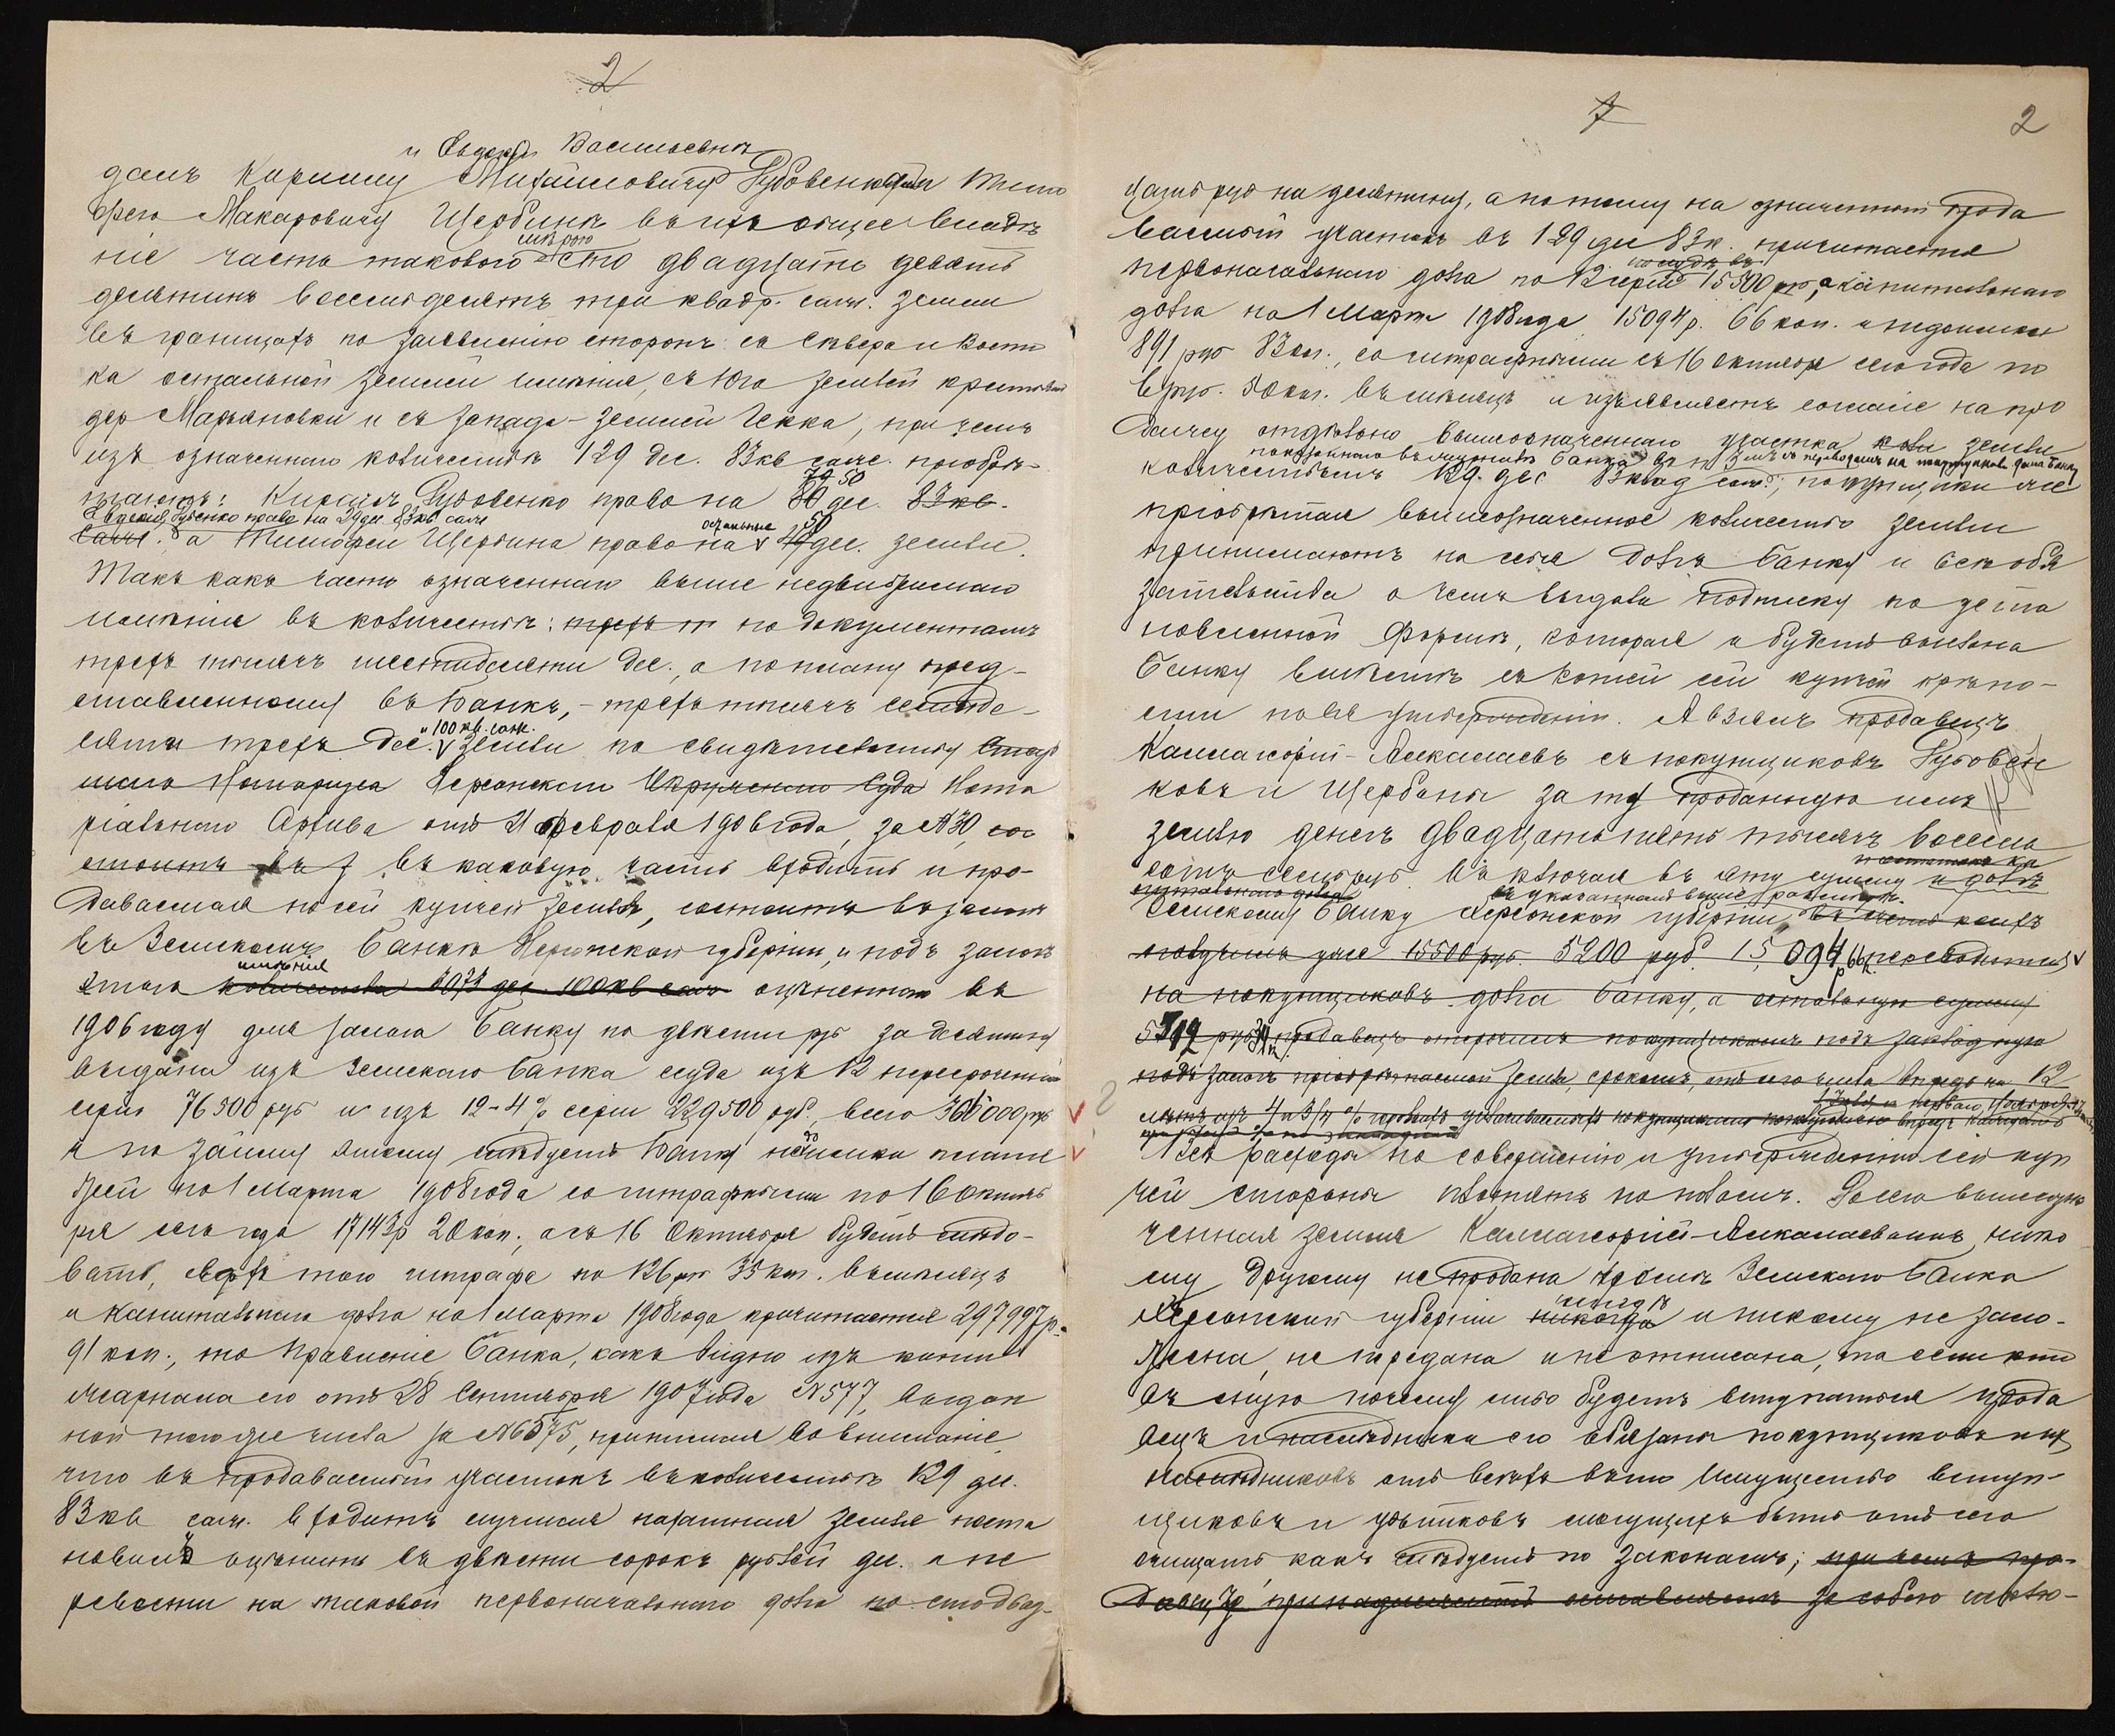 2
и Евдокіи Васильевнѣ
далъ Кириллу Михайловичу Губовенко Тимо
фею Макаровичу Щербинѣ въ ихъ общее владѣ
мѣрою
ніе часть таковаго сто двадцать девять
десятинъ восемьдесятъ три квадр. саж. земли
въ границахъ по заявленію сторонъ: съ Сѣвера и Восто
ка остальной землей имѣнія, съ Юга землей крестьянъ
дер Марьяновки и съ запада - землей Чекка, при чемъ
изъ означеннаго количества 129 дес. 83 кв саж. пріобрѣ-
50
таютъ: Кириллъ Губовенко право на дес. 83 кв.
Евдокія Губовенко право на 29 дес. 83 кв саж
остальные 50
саж. а Тимофей Щербина право на дес. земли.
Такъ какъ часть означеннаго выше недвижимаго
имѣнія въ количествѣ: трехъ т по документамъ
трехъ тысячъ шестидесяти дес., а по плану пред-
ставленному въ Банкъ, - трехъ тысячъ семиде-
и 100 кв. саж.
сяти трехъ дес. земли по свидѣтельству Стар
шаго Нотаріуса Херсонскаго Окружнаго Суда Нота
ріальнаго Архива отъ 21 Февраля 1906 года, за № 30, сос
тоитъ въ з въ каковую часть входитъ и про-
даваемая по сей купчей земля, состоитъ въ залогѣ
въ Земскомъ Банкѣ Херсонской губерніи, и подъ залогъ
имѣнія
этого количества 3073 дес. 100 кв саж оцѣненнаго въ
1906 году для залога Банку по двѣсти руб за десятину
выдана изъ Земскаго Банка ссуда изъ 12 пересроченной
серіи 76500 руб и изъ 19-4% серіи 229500 руб., всего 306000 руб
и по займу этому слѣдуетъ Банку недоимки плате
жей по 1 Марта 1908 года со штрафными по 16 Октяб
ря сего года 17143 р 20 коп., а съ 16 Октября будетъ слѣдо-
вать, сверхъ того штрафа по 126 руб 35 коп. въ мѣсяцъ
и капитальнаго долга на 1 Марта 1908 года причитается 297997 р.
91 коп., то Правленіе Банка, какъ видно изъ копіи
журнала его отъ 28 Сентября 1907 года № 577, выдан
ной того же числа за № 6575, принимая во вниманіе,
что въ продаваемый участокъ въ количествѣ 129 дес.
83 кв саж. входитъ лучшая пахатная земля поста
новилъ оцѣнить въ двѣсти сорокъ рублей дес. и пе
ревести на таковой первоначальнаго долга по сто двад-
7
2
цать руб на десятину, а потому на означенный прода
ваемый участокъ въ 129 дес 83 к. причитается
по ссудѣ въ
первоначальнаго долга по 12 серіи 15500 руб, а капитальнаго
долга на 1 Марта 1908 года 15094 р. 66 коп. и недоимки
891 руб 83 коп., со штрафными съ 16 октября сего года по
6 руб. 40 коп. въ мѣсяцъ и изъявляетъ согласіе на про
дажу отдѣльно вышеозначеннаго участка коли земли
показаннаго въ журналѣ Банка за съ переводомъ на покупщиковъ долга Банку
количествомъ 129. дес 83 квад саж; покупщики же
пріобрѣтая вышеозначенное количество земли
принимаютъ на себя долгъ Банку и всѣ обя
зательства о чемъ выдали подписку по уста
новленной формѣ, которая и будетъ выслана
Банку вмѣстѣ съ копіей сей купчей крѣпо-
сти по ея утвержденіи. А взялъ продавецъ
Каллагеоргій-Алкалаевъ съ покупщиковъ Губовен
ковъ и Щербаны за ту проданную имъ
землю денегъ двадцать пять тысячъ восемь
сотъ семь руб. Въ ключая въ эту сумму и долгъ
остатокъ ка
питальнаго долга въ указанномъ выше размѣрѣ.
Земскому Банку Херсонской губерніи, въ счетъ коихъ
получилъ уже 15500 руб. 5200 руб. 15,094 р 66 к. переводится
на покупщиковъ долга Банку, а остальную сумму
продавецъ отсрочилъ покупщикамъ подъ закладную
подъ залогъ пріобрѣтаемой земли, срокомъ отъ сего числа впредь на 12
лѣтъ изъ
Всѣ расходы по совершенію и утвержденію сей куп
чей стороны платятъ пополамъ. До сего вышеозна
ченная земля Каллагеоргій-Алкалаевымъ, нико
му другому не продана кромѣ Земскаго Банка
нигдѣ
Херсонской губерніи никогда и никому не зало-
жена, не передана и не отписана, та если кто
въ оную почему либо будетъ вступаться прода
вецъ и наслѣдники его обязаны покупщиковъ и ихъ
наслѣдниковъ отъ всѣхъ въ то имущество вступ-
щиковъ и убытковъ могущихъ быть отъ сего
очищать какъ слѣдуетъ по законамъ; при чемъ про-
давецъ оставляетъ за собою исклю-